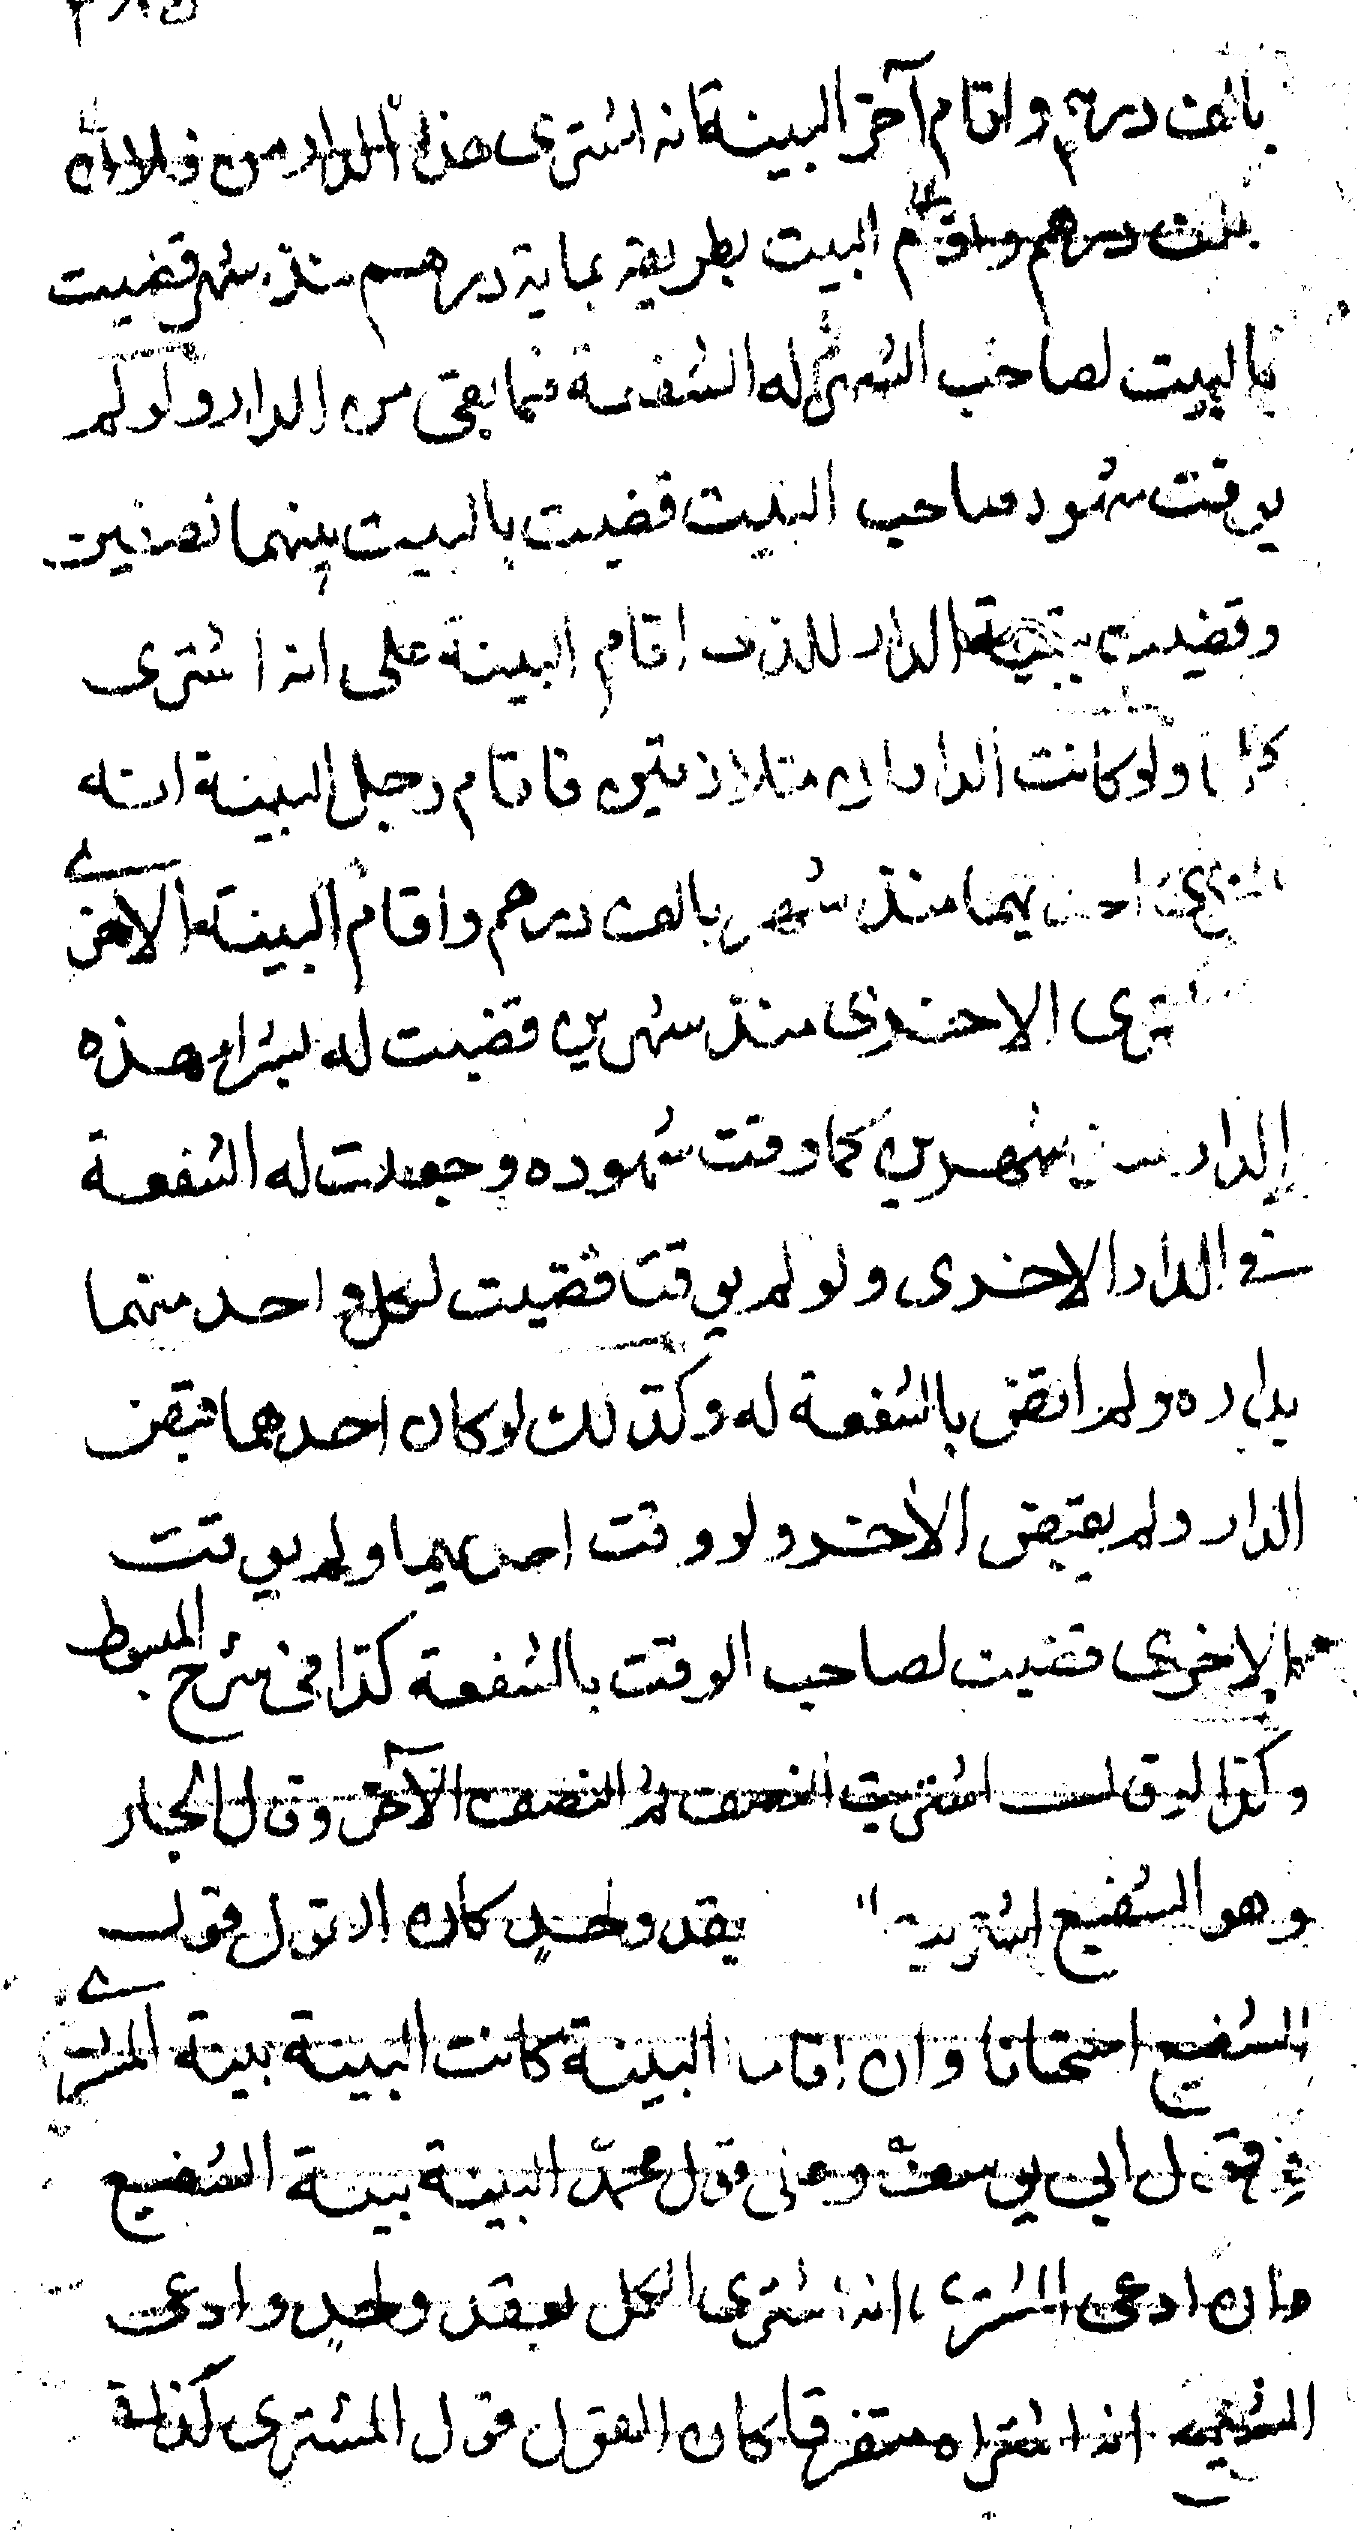 بالف درهم واقام آخر البينة انه اشترى هذا الدار من فلان
بالف درهم واقام البيت بطريقه بماية درهم منذ شهر قضيت
بالبيت لصاحب الشهر وله الشفعة فيما بقى من الدار ولو لم
يوقت شهود صاحب البيت قضيت بالبيت بينهما نصفين
وقضيت ببقية الدار للذى اقام البينة على انه اشترى
ولو كانت الداران متلازمتين فاقام رجل البينة انه
اشترى احديهما منذ شهر بالف درهم واقام البينة الآخر
اشترى الاخرى منذ شهرين قضيت له بشراء هذه
الدار منذ شهرين كما وقت شهوده وجعلت له الشفعة
فى الدار الاخرى ولو لم يوقتا قضيت لكل واحد منهما
بداره ولم اقض بالشفعة له وكذلك لو كان احدهما قبض
الدار ولم يقبض الآخر ولو وقت احديهما ولم يوقت
الاخرى قضيت لصاحب الوقت بالشفعة كذا فى شرح المبسوط
وكذا لو قال اشتريت النصف ثم النصف الآخر وقال الجار
وهو الشفيع اشتريت بعقد واحد كان القول قول
الشفيع استحسانا وان اقاما البينة كانت البينة بينة المشترى
فى قول ابى يوسف وعلى قول محمد البينة بينة الشفيع
وان ادعى المشترى انه اشترى الكل بعقد واحد وادعى
الشفيع انه اشتراه متفرقا كان القول قول المشترى كذا فى